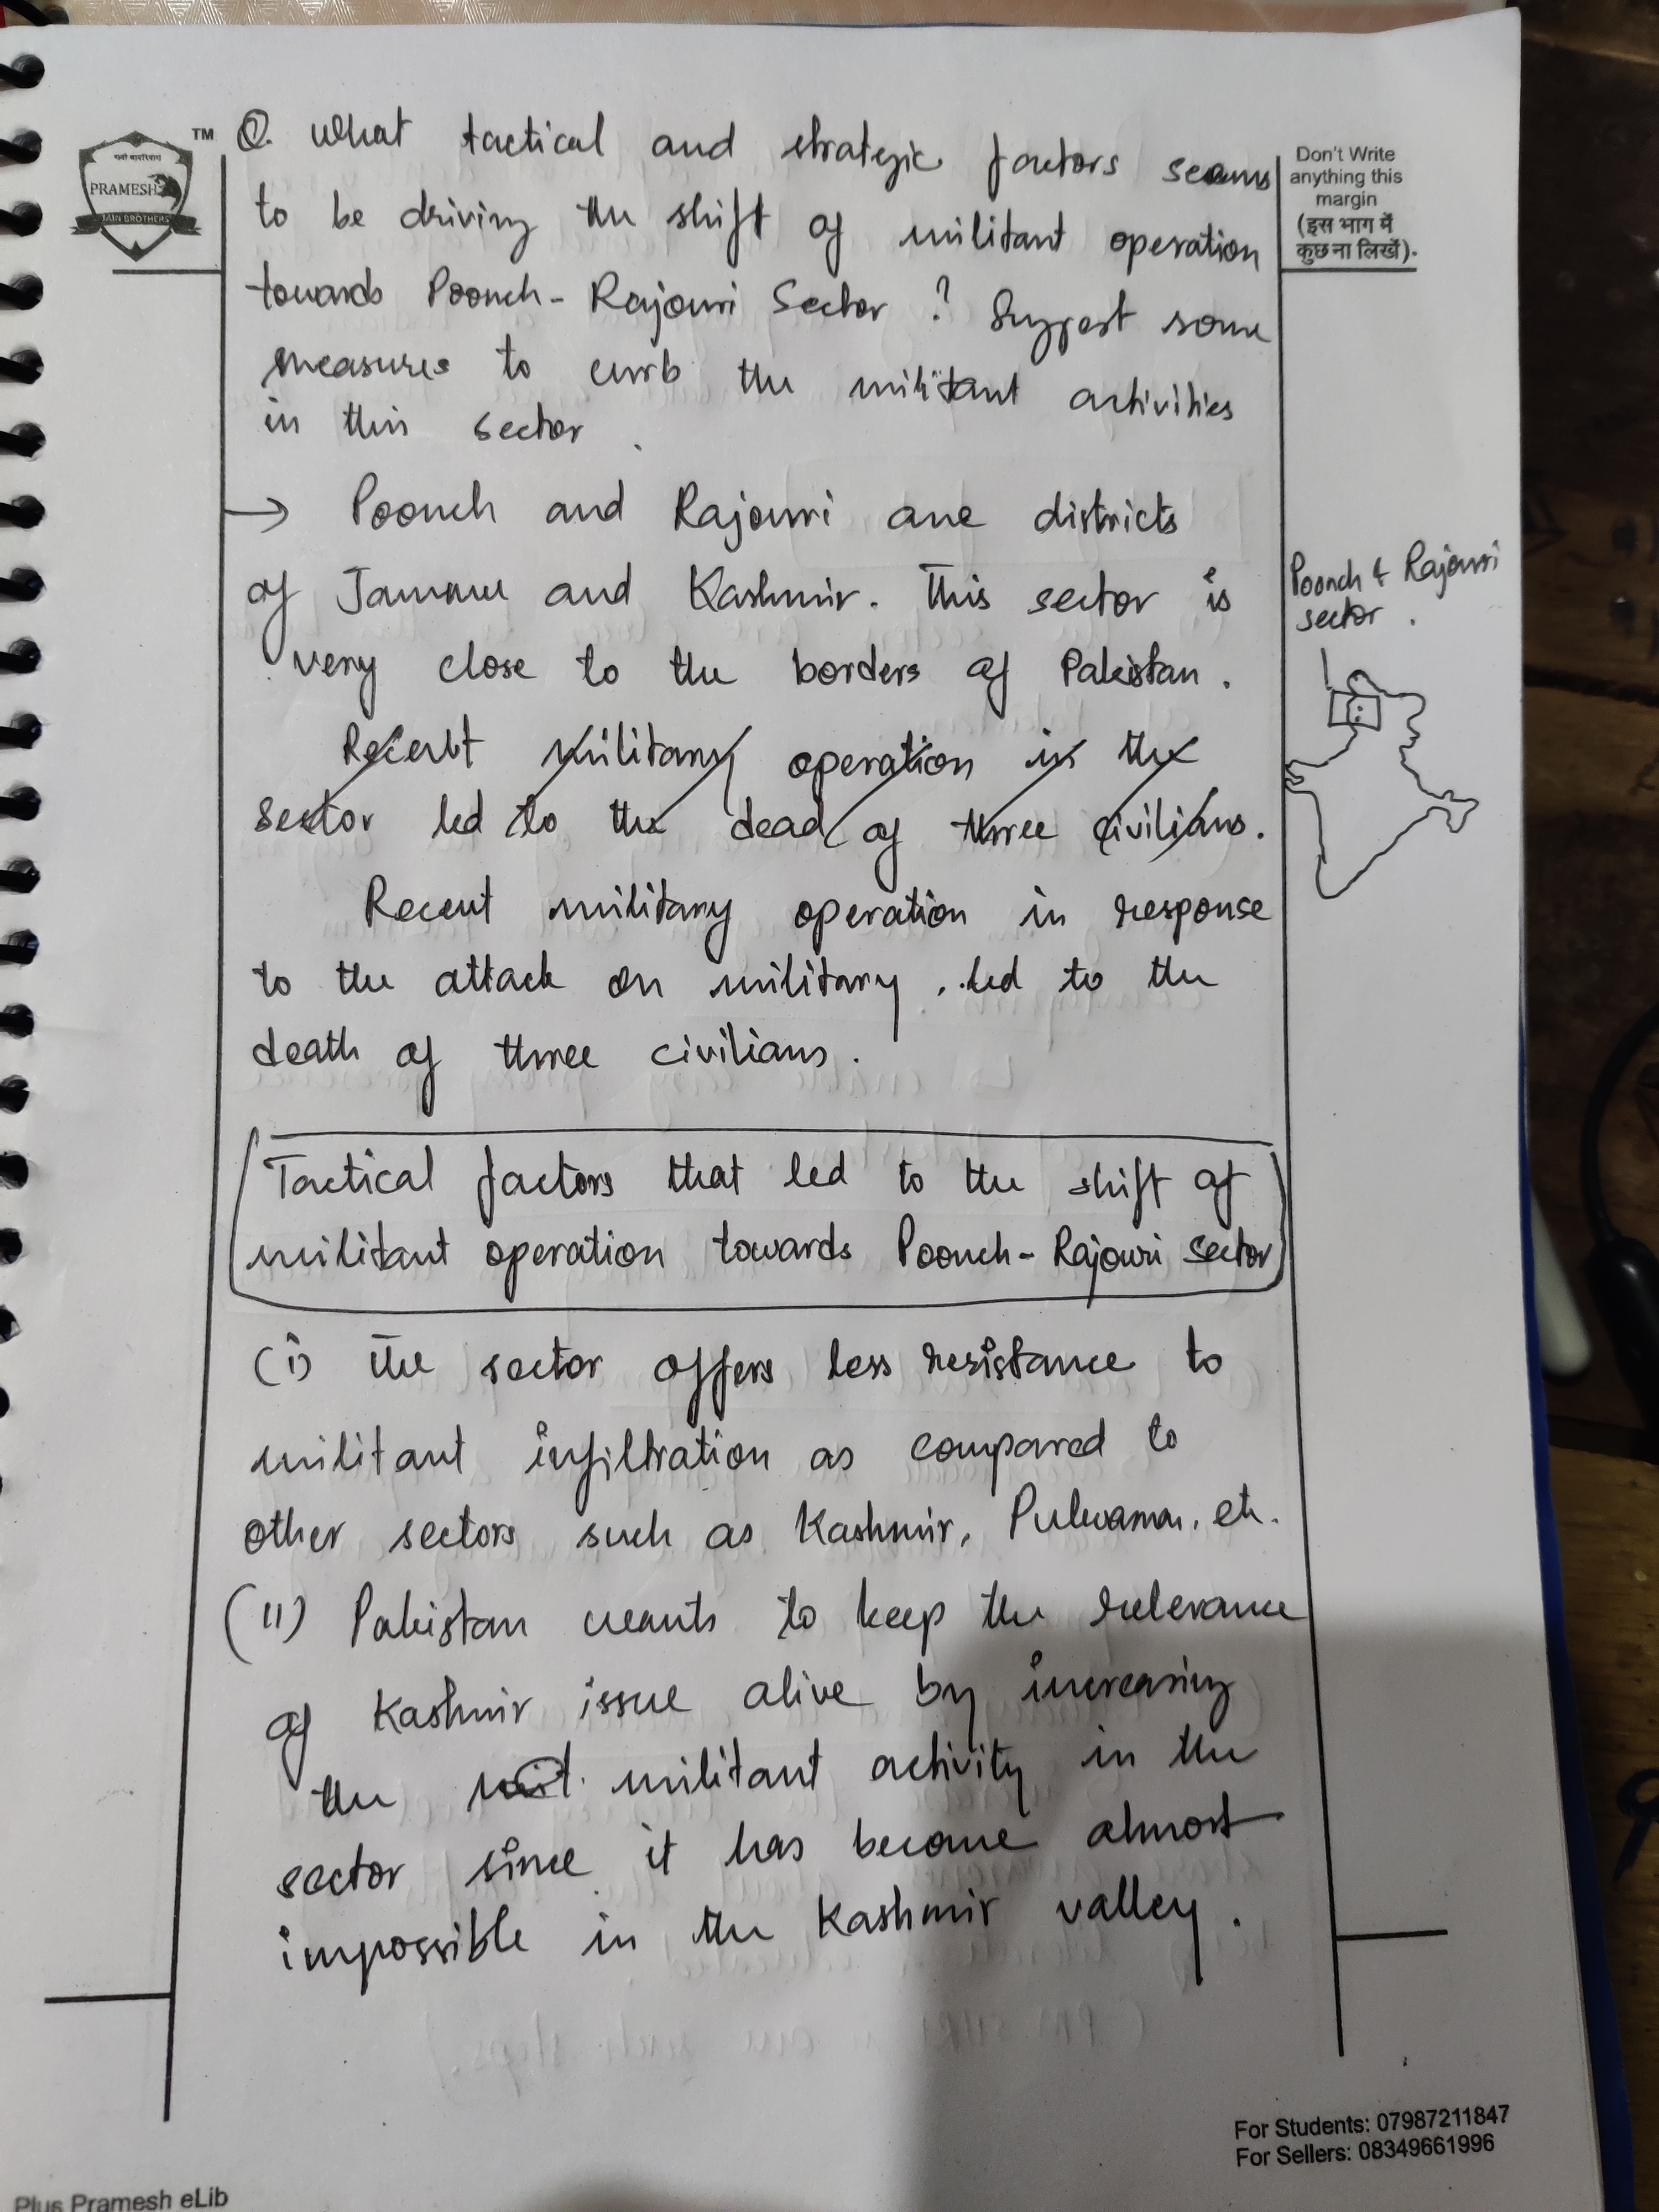 TM
PRAMESH
JAIN BROTHERS
Q. What tactical and strategic factors seems
to be driving the shift of militant operation
towards Poonch-Rajouri Sector? Suggest some
measures to curb the militant activities
in this sector.
Don't Write
anything this
margin
(इस भाग में
कुछ ना लिखें).
→ Poonch and Rajouri are districts
of Jammu and Kashmir. This sector is
very close to the borders of Pakistan.
Poonch & Rajouri
sector.
Recent military operation in the
sector led to the dead of three civilians.
Recent military operation in response
to the attack on military, led to the
death of three civilians.
Tactical factors that led to the shift of
militant operation towards Poonch-Rajouri sector
(i) The sector offers less resistance to
militant infiltration as compared to
other sectors such as Kashmir, Pulwama, etc.
(ii) Pakistan wants to keep the relevance
of Kashmir issue alive by increasing
the militant activity in the
sector since it has become almost
impossible in the Kashmir valley.
For Students: 07987211847
For Sellers: 08349661996
Plus Pramesh eLib